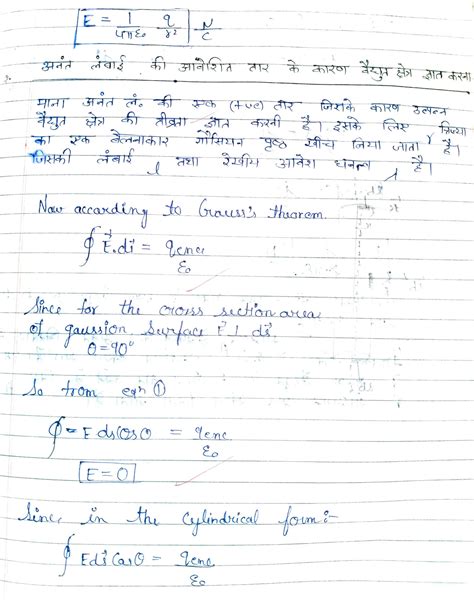 E = 1/4πε₀ q/r² N/C
अनंत लंबाई की आवेशित तार के कारण वैद्युत क्षेत्र ज्ञात करना
माना अनंत लं. की एक (+ve) तार जिसके कारण उत्पन्न
वैद्युत क्षेत्र की तीव्रता ज्ञात करनी है। इसके लिए r त्रिज्या
का एक बेलनाकार गौसियन पृष्ठ खींच लिया जाता है।
जिसकी लंबाई l तथा रेखीय आवेश घनत्व λ है।
Now according to Gauss's theorem.
∮ E⃗.ds⃗ = qenc/ε₀
Since for the cross section area
of gaussion surface E⃗ ⊥ ds⃗
θ = 90°
So from eqn ①
∮ = E ds Cosθ = qenc/ε₀
E = 0
Since, in the cylindrical form:-
∮ E ds⃗ Cosθ = qenc/ε₀
ds